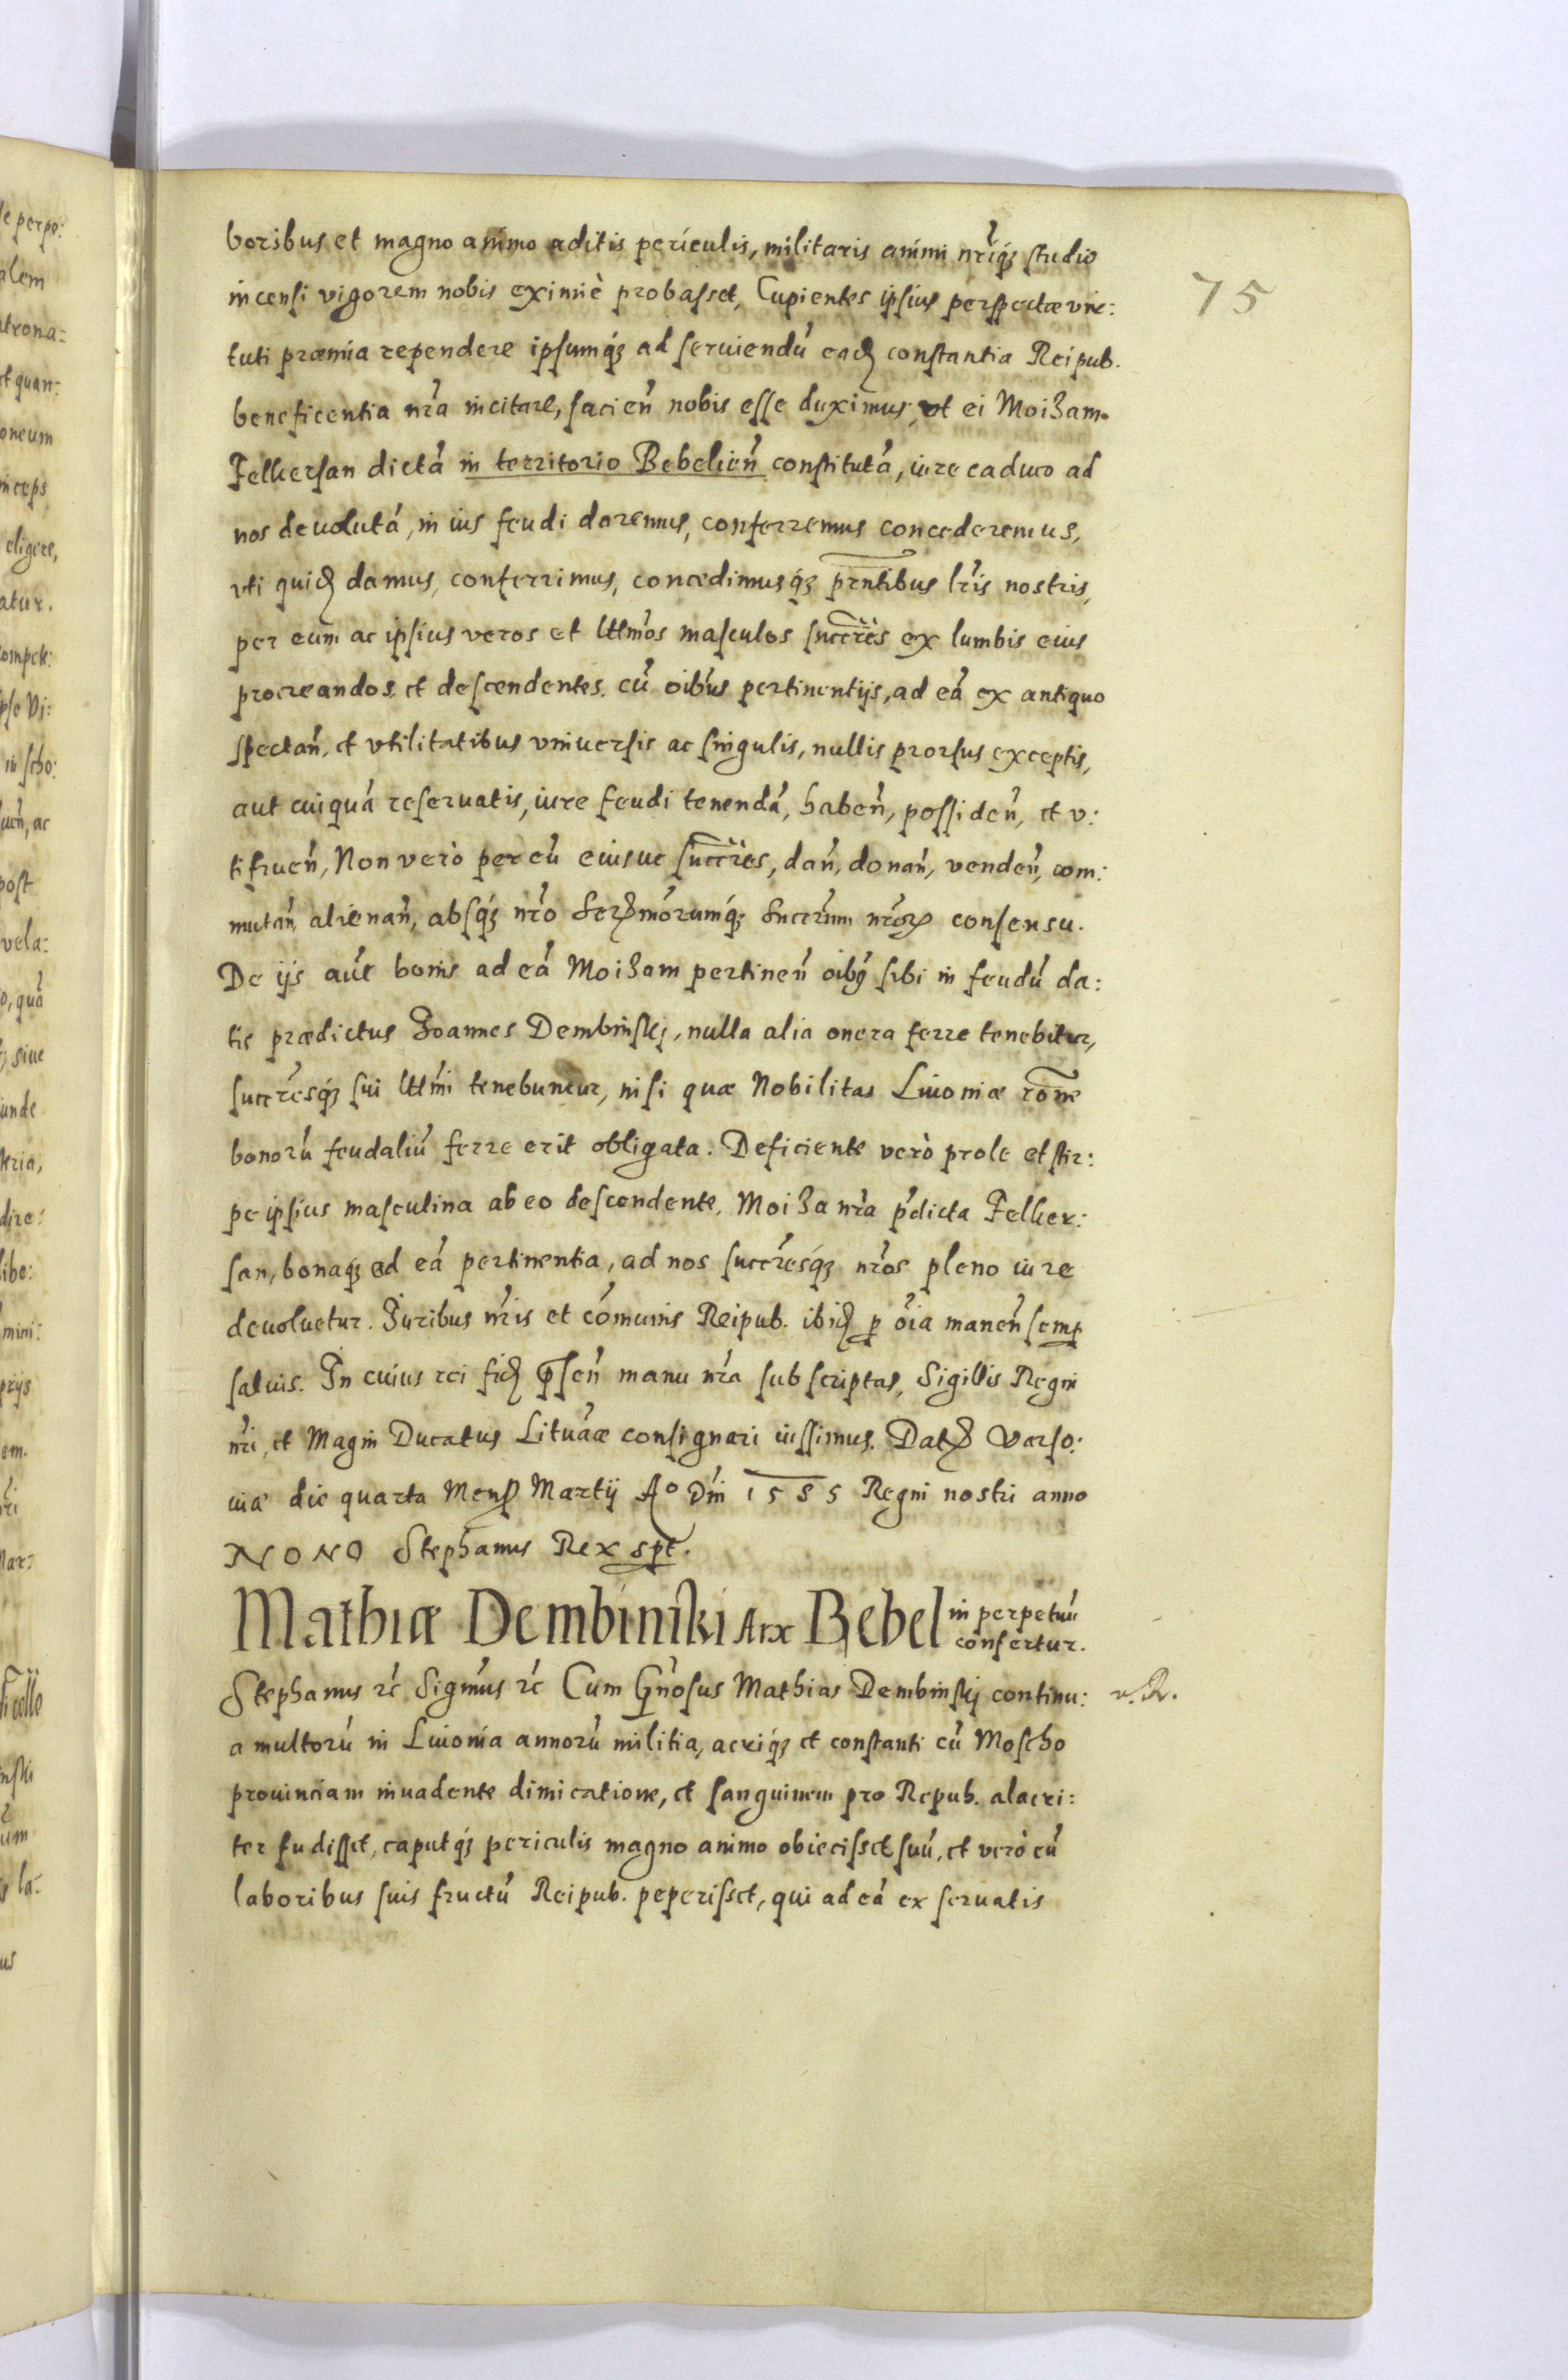 75
boribus et magno animo aditis periculis, militaris animi nr̃iq́; studio
incensi vigorem nobis eximiè probasset, Cupientes ipsius perspectæ vir:
tuti præmia rependere ipsumq́; ad seruiendũ eadẽ constantia Reipub.
beneficentia nr̃a incitare, facień nobis esse duximus, vt ei Moizam
Felkersan dictã in territorio Bebelień constitutã, iure caduco ad
nos deuolutã, in ius feudi daremus, conferremus concederemus,
vti quidẽ damus, conferrimus, concedimusq́; prñtibus lr̃is nostris,
per eum ac ipsius veros et lttm̃os masculos succr̃es ex lumbis eius
procreandos et descendentes. cũ oĩbus pertinentijs, ad eã ex antiquo
spectań, et vtilitatibus vniuersis ac singulis, nullis prorsus exceptis,
aut cuiquã reseruatis, iure feudi tenendã, habeń, possideń, et v:
tifrueń, Non verò per eũ eiusue succr̃es, dań, donań, vendeń, com:
mutań, alienań, absq́; nr̃o Serẽmorumq́; Succr̃um nr̃orũ consensu.
De ijs aũt bonis ad eã Moizam pertineń oĩbus sibi in feudũ da:
tis prædictus Joannes Dembinskj, nulla alia onera ferre tenebitur,
succr̃esq́; sui lttm̃i tenebuntur, nisi quæ Nobilitas Liuoniæ rõne
bonorũ feudaliũ ferre erit obligata. Deficiente verò prole et stir:
pe ipsius masculina ab eo descendente, Moiza nr̃a p̃dicta Felker:
san, bonaq́; ad eã pertinentia, ad nos succr̃esq́; nr̃os pleno iure
deuoluetur. Juribus nr̃is et cõmunis Reipub. ibidẽ ꝑ oĩa maneń semꝑ
saluis. In cuius rei fidẽ p̃seń manu nr̃a subscriptas, Sigillis Regni
nr̃i, et Magni Ducatus Lituãæ consignari iussimus. Datũ Varso:
uiæ die quarta Mens̃ Martij Aᵒ Dñi 1585 Regni nostri anno
NONO Stephanus Rex spt̃.
Mathiæ Dembinski Arx Bebel in perpetuũ
confertur.
Stephanus rć Sigmũs rć Cum Gñosus Mathias Dembinskj continu:
a multorũ in Liuonia annorũ militia, acriq́; et constanti cũ Moscho
prouinciam inuadente dimicatione, et sanguinem pro Repub. alacri:
ter fudisset, caputq́; periculis magno animo obiecisset suũ, et verò cũ
laboribus suis fructũ Reipub. peperisset, qui ad eã ex seruatis